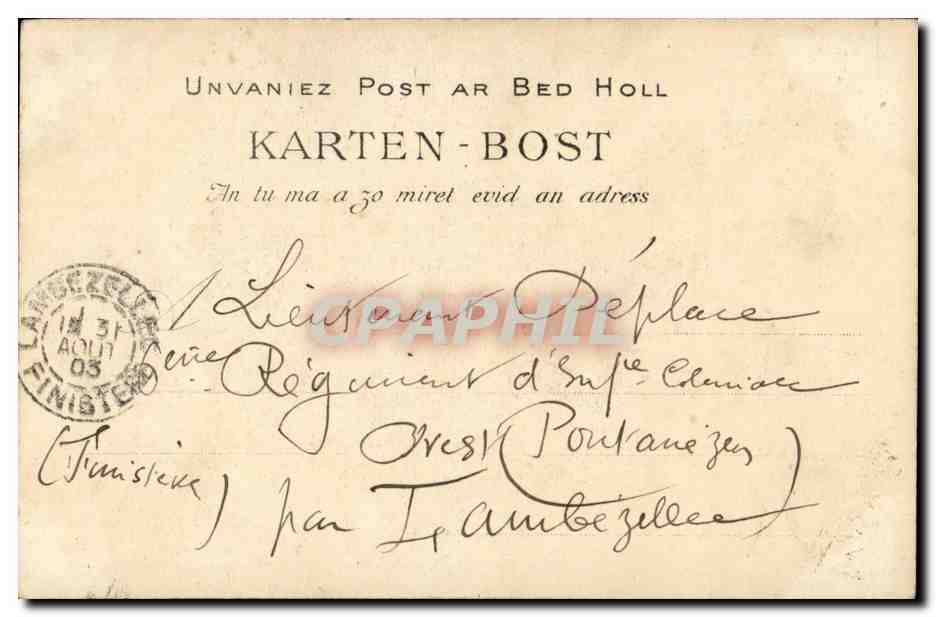 UNVANIEZ POST AR BED HOLL
KARTEN-BOST
An tu ma a zo miret evid an adress
Lieutenant Déplace
6eme Régiment d'Infie Coloniale
Brest (Pontanézen)
(Finistère) par Lambézellec
LAMBEZELLEC
31
AOUT
03
FINISTERE
CPAPHIL